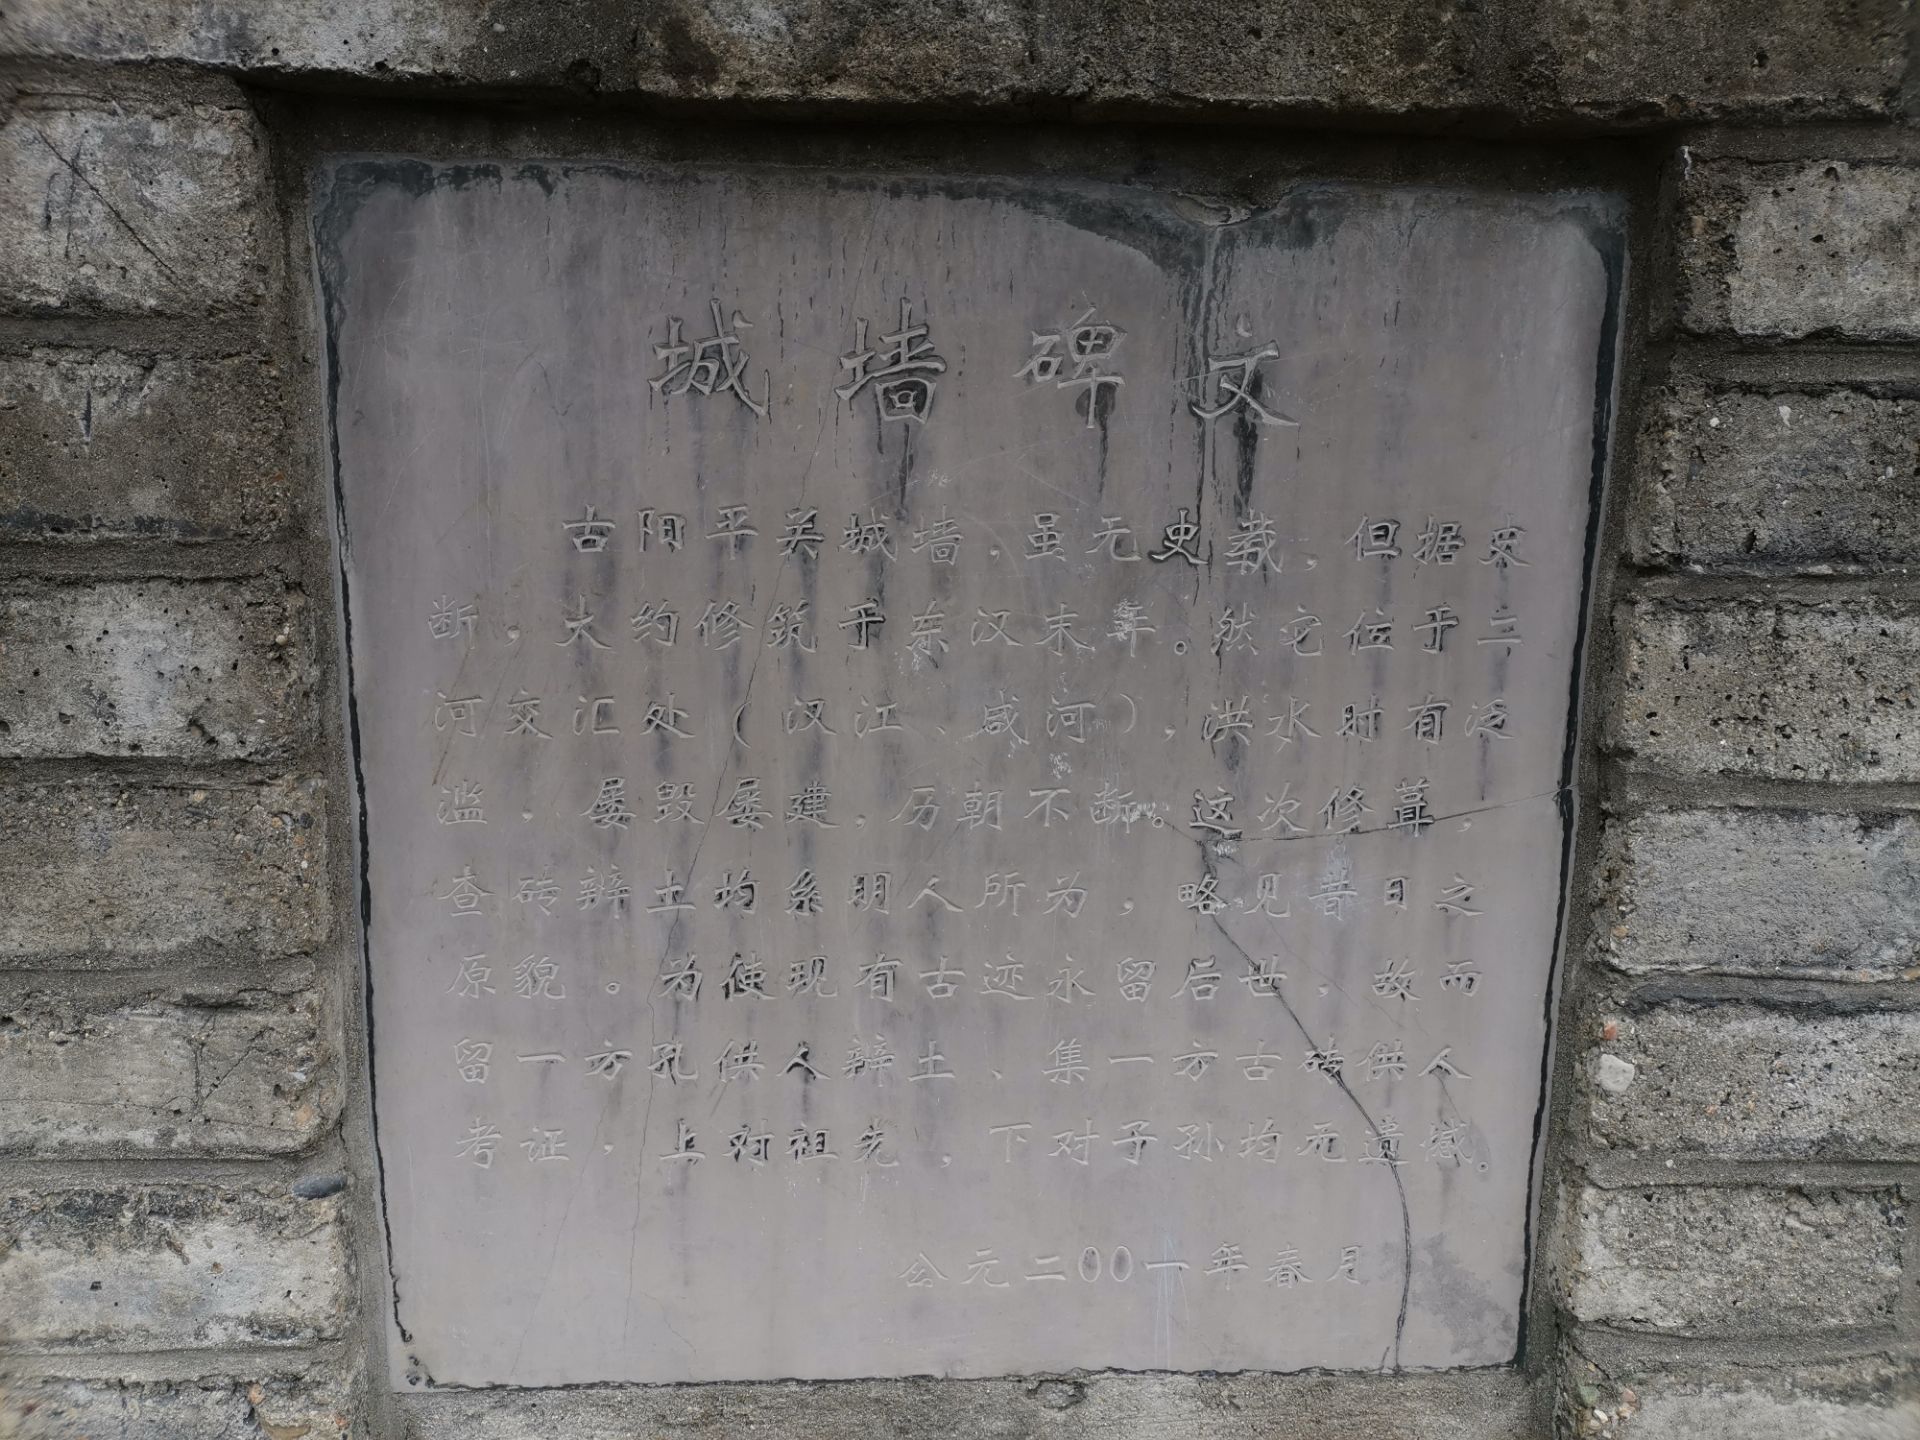 城墙碑文
古阳平关城墙，虽无史载，但据史
断，大约修筑于东汉末年。然它位于二
河交汇处（汉江、咸河），洪水时有泛
滥，屡毁屡建，历朝不断。这次修葺，
查砖辨土均系明人所为，略见昔日之
原貌。为使现有古迹永留后世，故而
留一方孔供人辨土、集一方古砖供人
考证，上对祖先，下对子孙均无遗憾。
公元二00一年春月